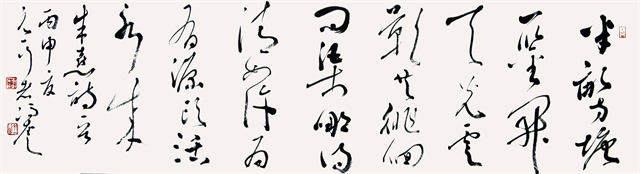 半亩方塘
一鉴开
天光云
影共徘徊
问渠哪得
清如许为
有源头活
水来
朱熹诗一首
丙申夏